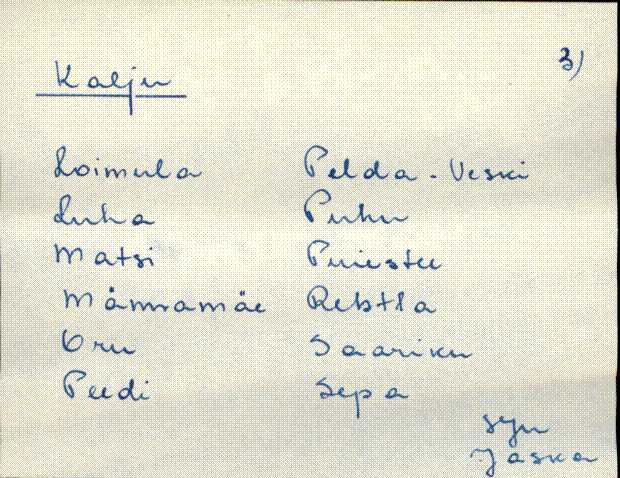 3)
Kalju
Loimula
Luha
Matsi
Männamäe
Oru
Peedi
Pelda-Veski
Puhu
Puiestee
Rebtla
Saariku
Sepa
syn
Jaska